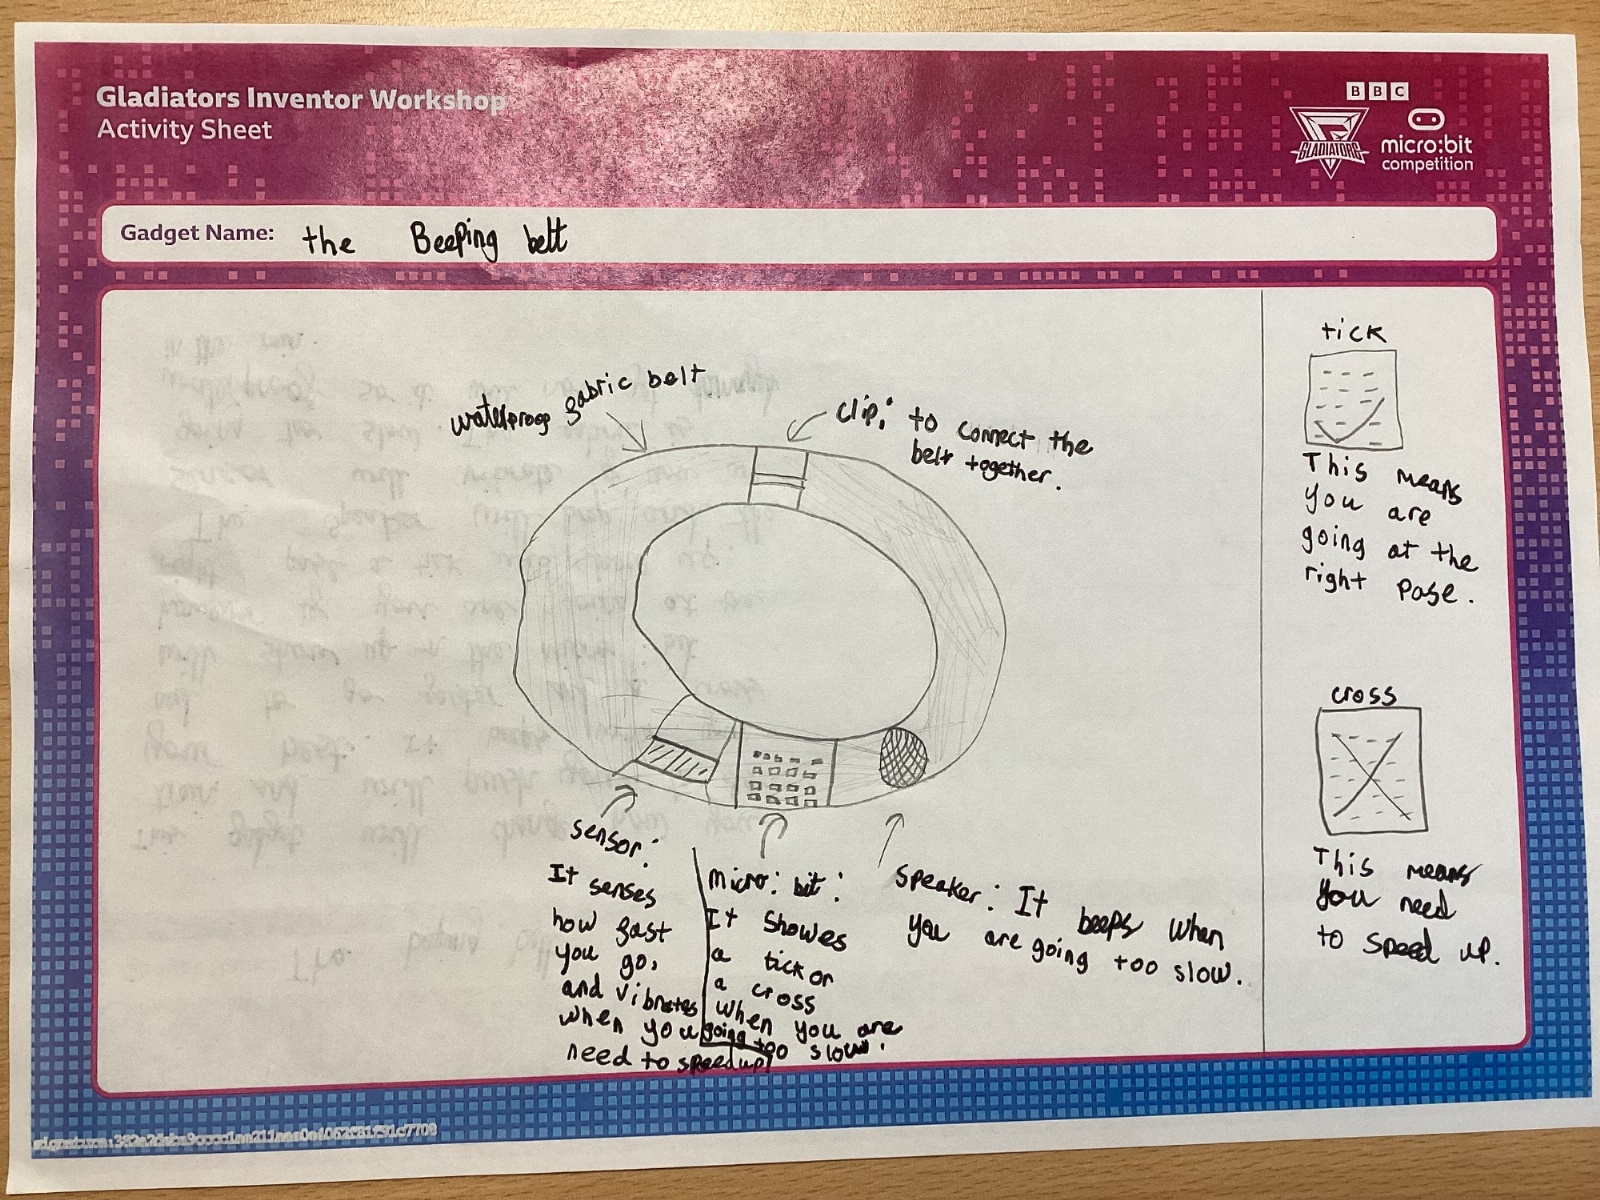 Gladiators Inventor Workshop
Activity Sheet
BBC
GLADIATORS
micro:bit
competition
Gadget Name: the Beeping belt
waterproof fabric belt
clip: to connect the
belt together.
tick
This means
you are
going at the
right pase.
cross
This means
you need
to speed up.
sensor:
It senses
how fast
you go,
and vibrates
when you
need to speed up!
micro:bit:
It showes
a tick or
a cross
when you are
going too slow.
speaker: It beeps when
you are going too slow.